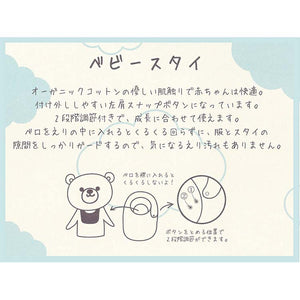 ベビースタイ
オーガニックコットンの優しい肌触りで赤ちゃんは快適。
付け外ししやすい左肩スナップボタンになっています。
2段階調節付きで、成長に合わせて使えます。
ベロをえりの中に入れるとくるくる回らずに、服とスタイの
隙間をしっかりガードするので、気になるえり汚れもありません。
ベロを腰に入れると
くるくるしないよ!
① ②
ボタンをとめる位置で
2段階調節ができます。